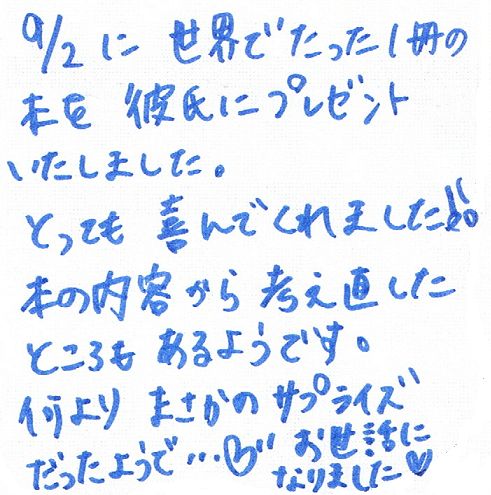 9/2に 世界でたった1冊の
本を 彼氏にプレゼント
いたしました。
とっても 喜んでくれました!!
本の内容から 考え直した
ところも あるようです。
何より まさかの サプライズ
だったようで…♡゛ お世話に
なりました♡